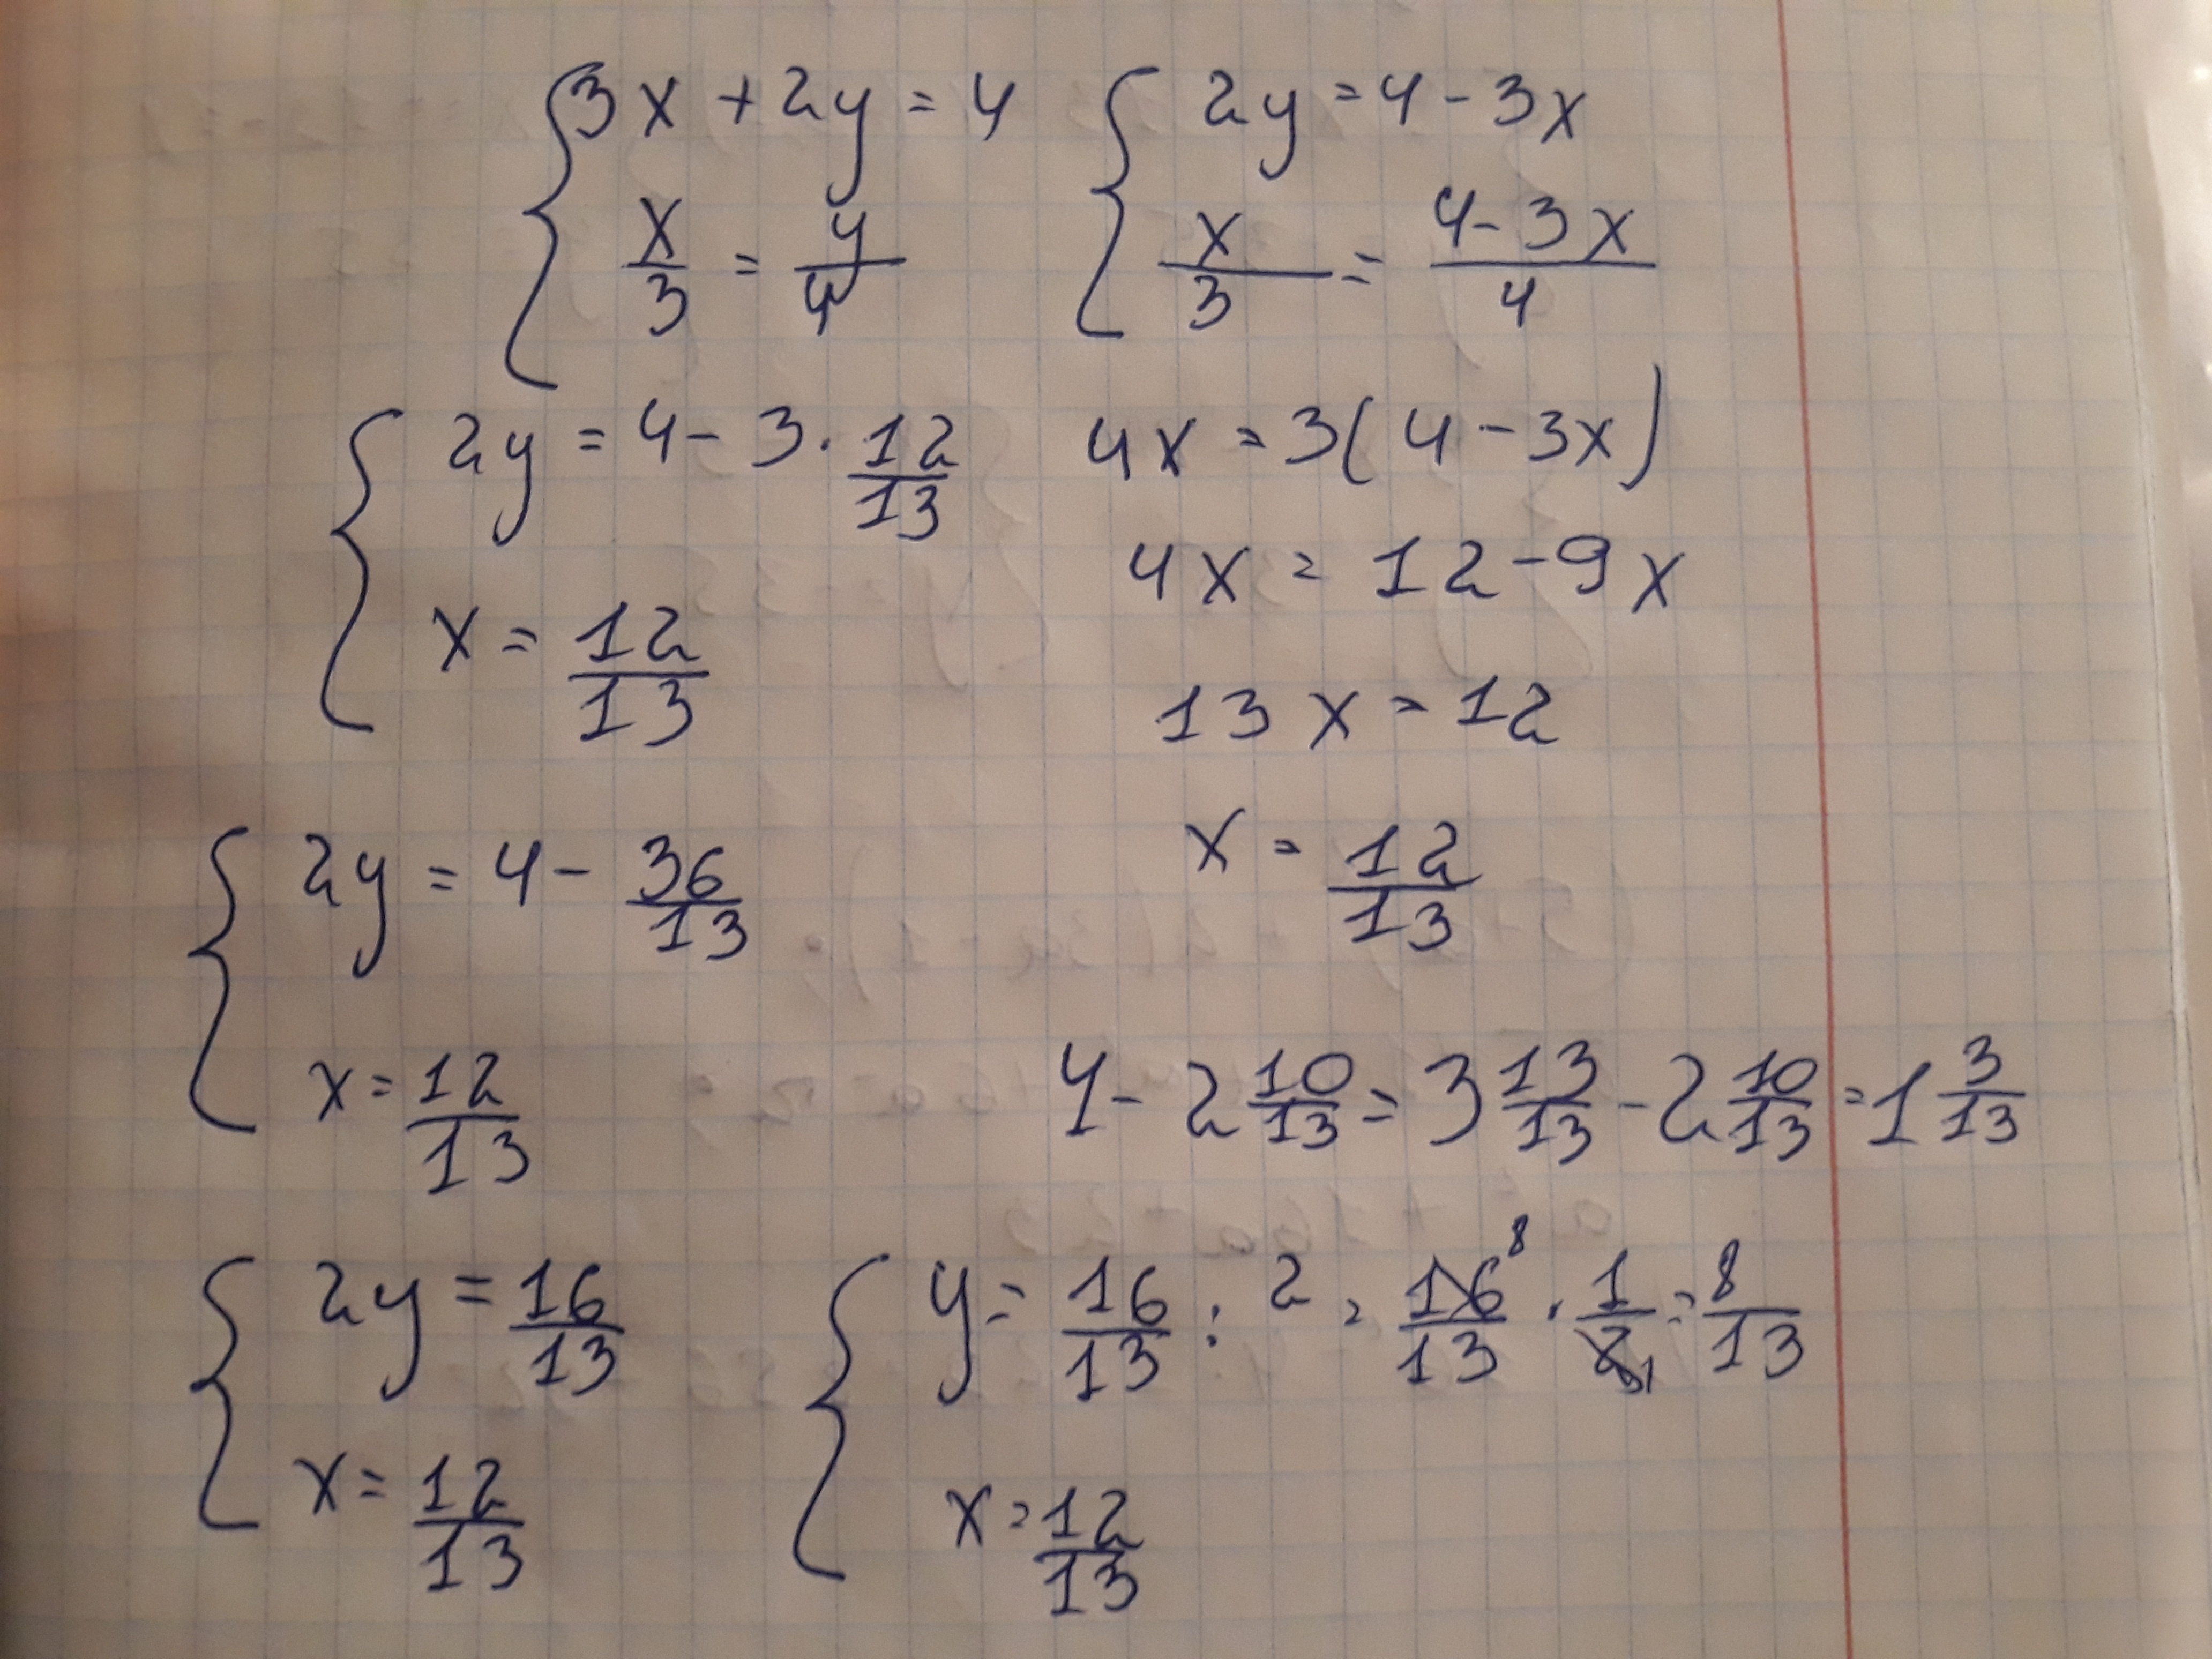 { 3x + 2y = 4
x/3 = y/4
{ 2y = 4 - 3x
x/3 = (4 - 3x)/4
4x = 3(4 - 3x)
4x = 12 - 9x
13x = 12
x = 12/13
{ 2y = 4 - 3 · 12/13
x = 12/13
{ 2y = 4 - 36/13
x = 12/13
4 - 2 10/13 = 3 13/13 - 2 10/13 = 1 3/13
{ 2y = 16/13
x = 12/13
{ y = 16/13 : 2 = 16 8/13 · 1/2 1 = 8/13
x = 12/13